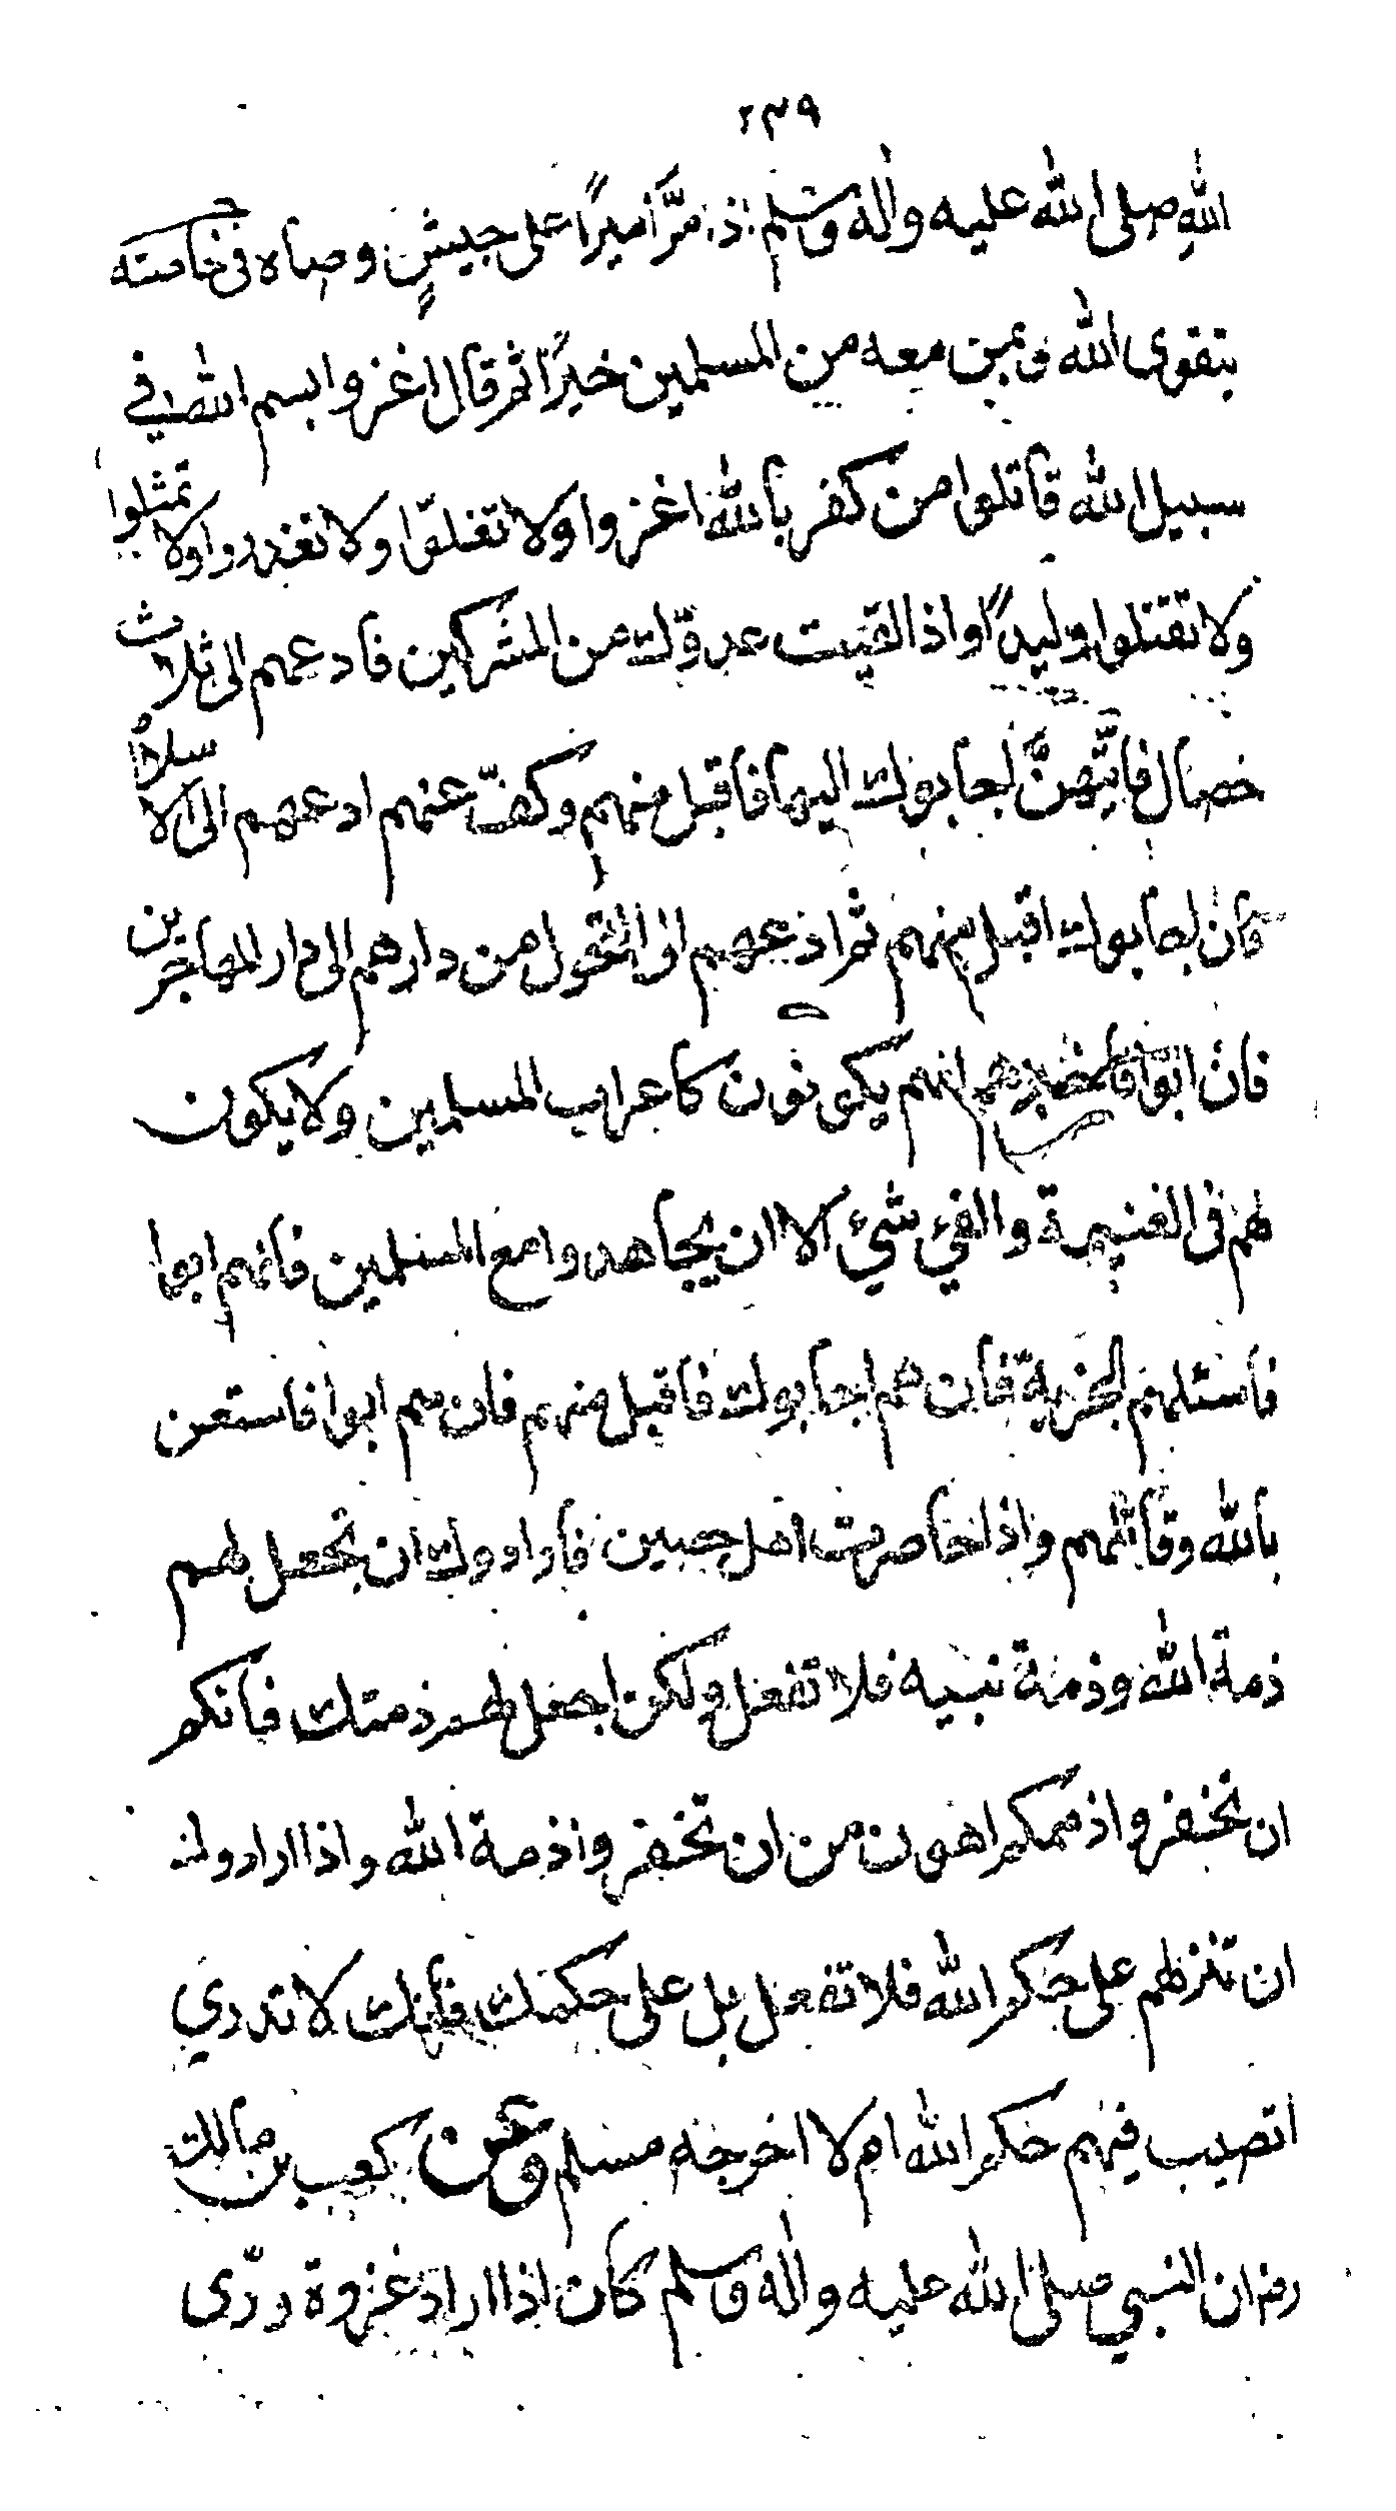 ٢٣٩
الله صلى الله عليه واله وسلم اذا مرَّ أميرًا على جيشٍ وصاه في خاصته
بتقوى الله وبمن معه من المسلمين خيرًا ثم قال اغزوا بسم الله في
سبيل الله قاتلوا من كفر بالله اغزوا ولا تغلّوا ولا تغدروا ولا تمثلوا
ولا تقتلوا وليدًا واذا لقيت عدوّك من المشركين فادعهم الى ثلاث
خصال فايّتهنَّ اجابوك اليها فاقبل منهم وكفّ عنهم ادعهم الى الاسلام
فان اجابوك اقبل منهم ثم ادعهم الى التحول من دارهم الى دار المهاجرين
فان ابوا فاخبرهم انهم يكونون كاعراب المسلمين ولا يكون
لهم فى الغنيمة والفيء شيء الا ان يجاهدوا مع المسلمين فانهم ابوا
فاسئلهم الجزية فان هم اجابوك فاقبل منهم فان هم ابوا فاستعن
بالله وقاتلهم واذا حاصرت اهل حصين فارادوك ان تجعل لهم
ذمة الله وذمة نبيه فلا تفعل ولكن اجعل لهم ذمتك فانكم
ان تخفروا ذممكم اهون من ان تخفروا ذمة الله واذا ارادوك
ان تنزلهم على حكم الله فلا تفعل بل على حكمك فانك لا تدري
اتصيب فيهم حكم الله ام لا اخرجه مسلم وعن كعب بن مالك
رضه ان النبي صلى الله عليه واله وسلم كان اذا اراد غزوة ورّى